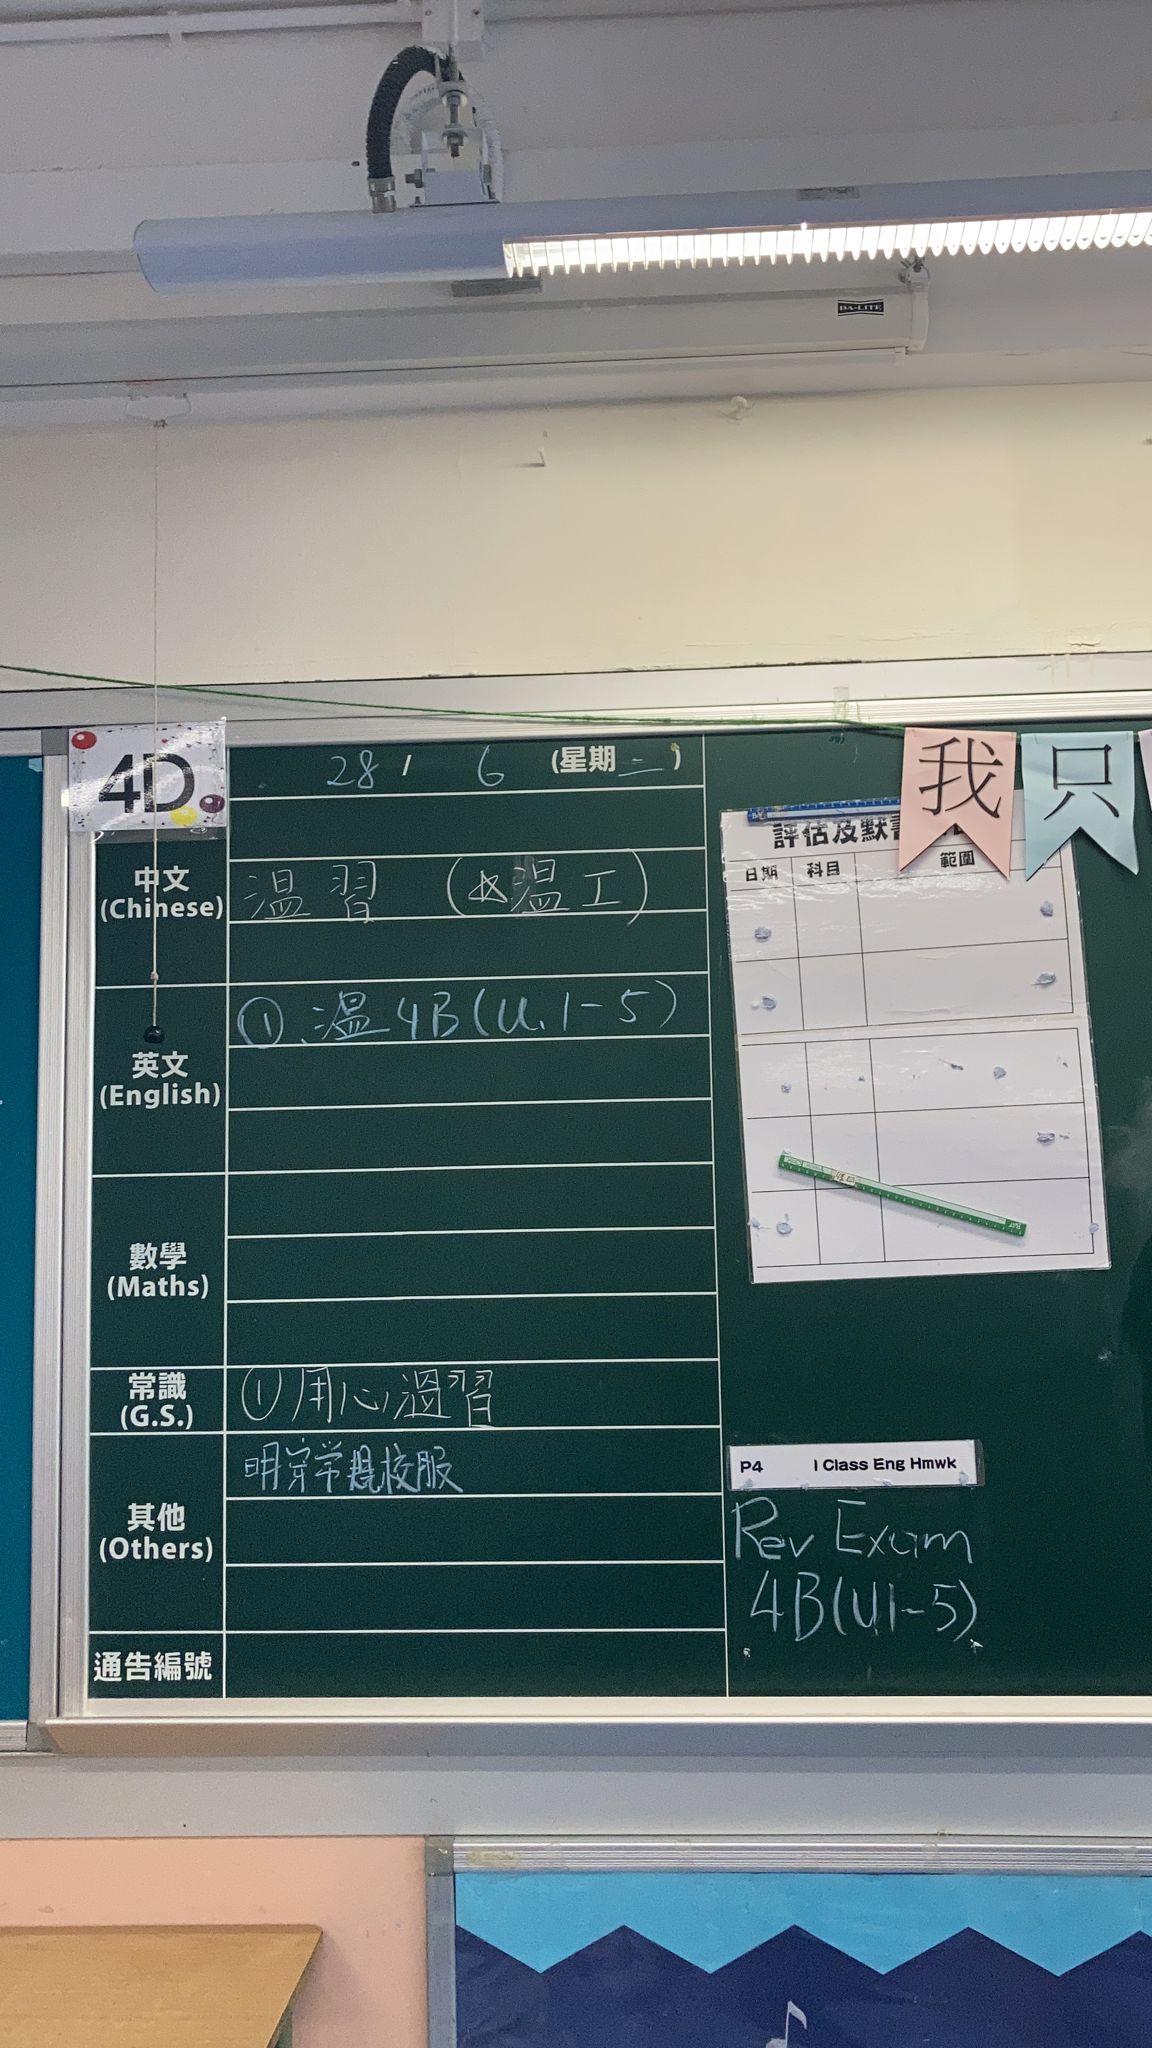 DA-LITE
4D
28 / 6 (星期二)
我只
評估及默書
日期 科目 範圍
中文
(Chinese)
溫習 (溫工)
英文
(English)
① 溫4B(U.1-5)
數學
(Maths)
常識
(G.S.)
①用心溫習
其他
(Others)
明穿常規校服
通告編號
P4 I Class Eng Hmwk
Rev Exam
4B(U1-5)